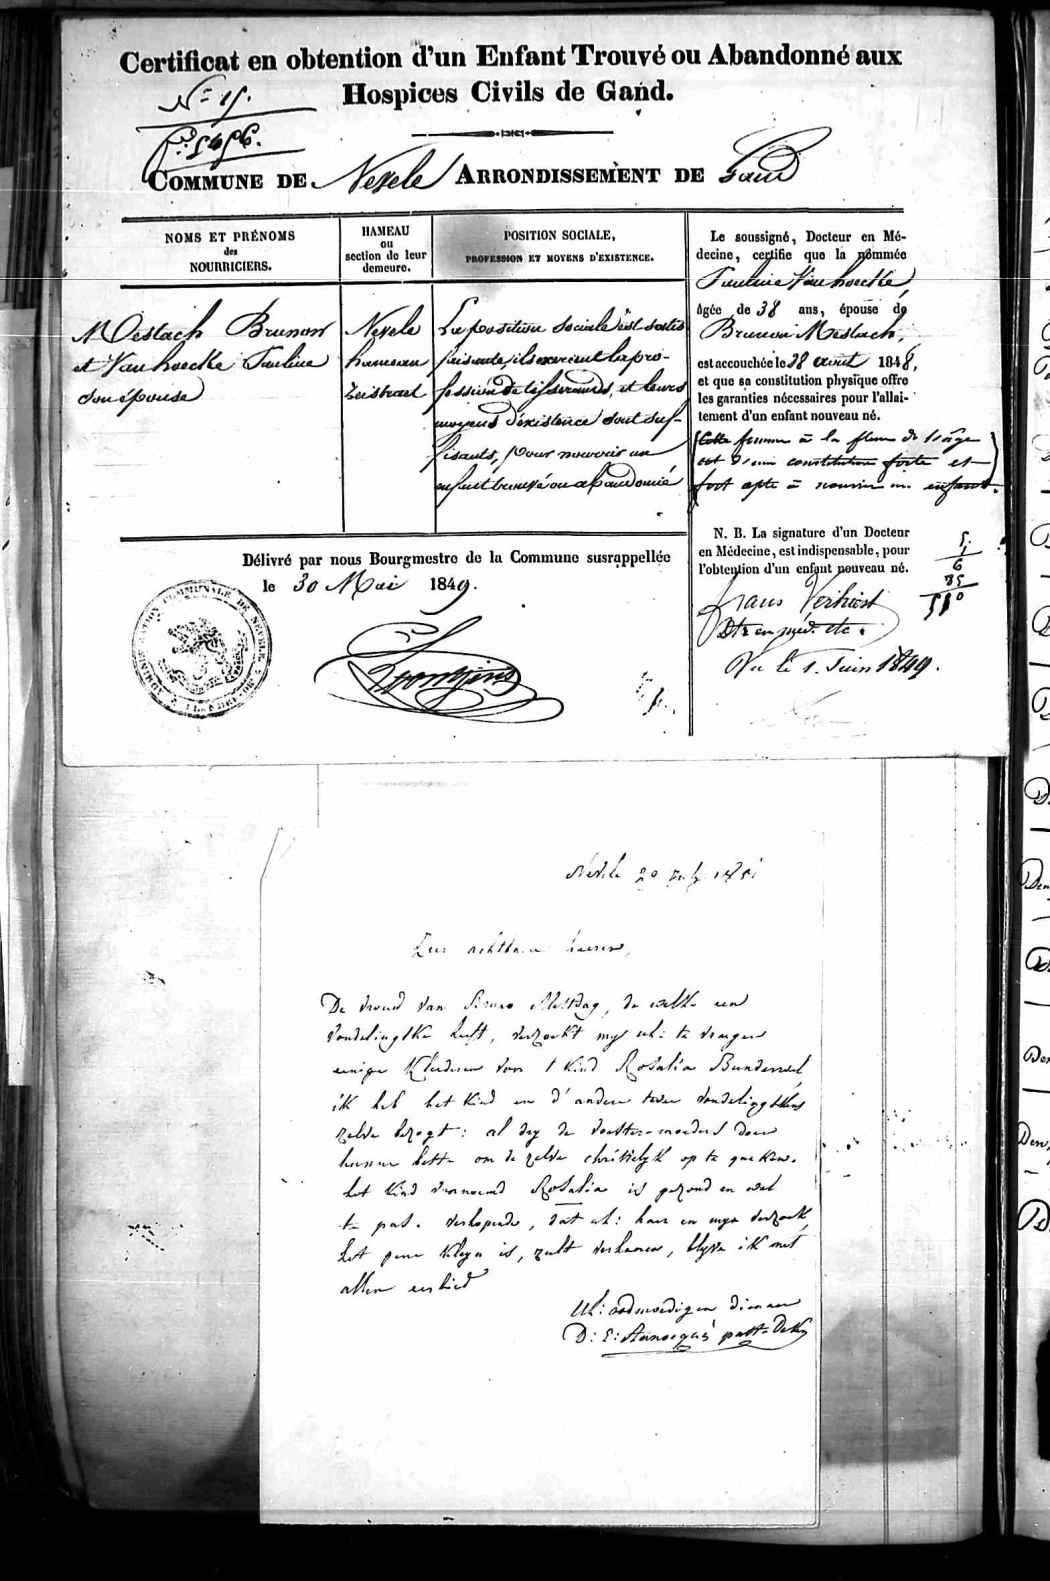 Certificat en obtention d'un Enfant Trouvé ou Abandonné aux
Hospices Civils de Gand.
COMMUNE DE Nevele ARRONDISSEMENT DE Gand
NOMS ET PRÉNOMS
des
NOURRICIERS.
HAMEAU
ou
section de leur
demeure.
POSITION SOCIALE,
PROFESSION ET MOYENS D'EXISTENCE.
Mestach Brunon
et Vanhoecke Pauline
son épouse
Nevele
hameau
La position sociale est satis
faisante, ils exercent la pro-
fession de tisserands, et leurs
moyens d'existence sont suf-
fisants, pour nourrir un
enfant trouvé ou abandonné
Le soussigné, Docteur en Mé-
decine, certifie que la nommée
Pauline Vanhoecke,
âgée de 38 ans, épouse de
Brunon Mestach,
est accouchée le 28 août 1848,
et que sa constitution physique offre
les garanties nécessaires pour l'allai-
tement d'un enfant nouveau né.
Cette femme à la fleur de l'âge
est d'une constitution forte et
fort apte à nourrir un enfant.
N. B. La signature d'un Docteur
en Médecine, est indispensable, pour
l'obtention d'un enfant nouveau né.
5.
1
6
85
510
Dtr en méd. etc.
Vu le 1. Juin 1849.
Délivré par nous Bourgmestre de la Commune susrappellée
le 30 Mai 1849.
Nevele 20 1851
Zeer achtbare heeren,
De vrouw van Bruno Mestdag, de welke een
vondelingske heeft, verzoekt my ul: te vragen
eenige kleederen voor 't kind Rosalia
ik heb het kind en d'andere twee vondelingskens
zelve bezogt: al dry de voester-moeders doen
hunne beste om de zelve christelyk op te queken.
het kind voornoemd Rosalia is gezond en wel
te pas. verhopende, dat ul: haer en myn verzoek
het geene kleyn is, zult verhooren, blyve ik met
allen eerbied
Ul: ootmoedigen dienaer
D: E: